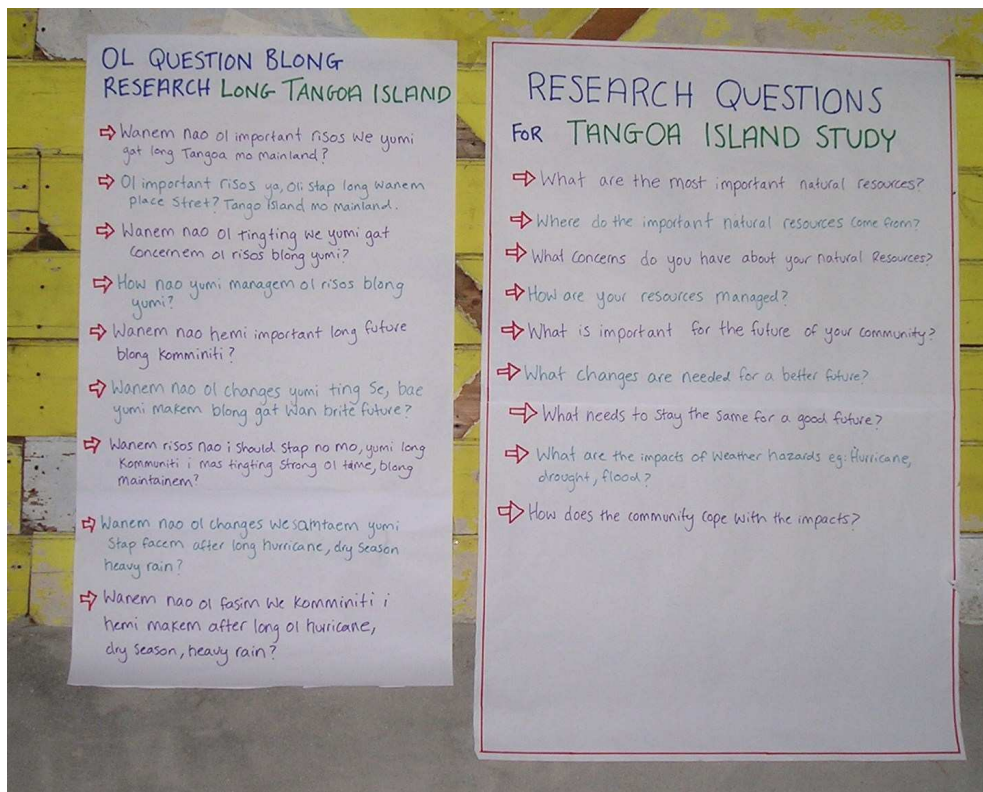 OL QUESTION BLONG
RESEARCH LONG TANGOA ISLAND
Wanem nao ol important risos we yumi
gat long Tangoa mo mainland?
Ol important risos ya, Oli stap long wanem
place Stret? Tango Island mo mainland.
Wanem nao ol tingting we yumi gat
Concernem ol risos blong yumi?
How nao yumi managem ol risos blong
yumi?
Wanem nao hemi important long future
blong Komminiti?
Wanem nao ol changes yumi ting Se, bae
yumi makem blong gat wan brite future?
Wanem risos nao i should Stap no mo, yumi long
Kommuniti i mas tingting Strong ol time, blong
maintainem?
Wanem nao ol changes we samtaem yumi
Stap facem after long hurricane, dry season
heavy rain?
Wanem nao ol fasim we Komminiti i
hemi makem after long ol hurricane,
dry season, heavy rain?
RESEARCH QUESTIONS
FOR TANGOA ISLAND STUDY
What are the most important natural resources?
Where do the important natural resources come from?
What concerns do you have about your natural Resources?
How are your resources managed?
What is important for the future of your community?
What changes are needed for a better future?
What needs to stay the same for a good future?
What are the impacts of weather hazards eg: Hurricane,
drought, flood?
How does the community cope with the impacts?